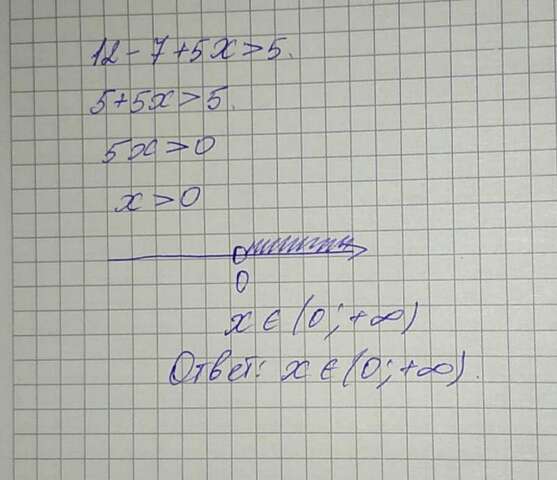 12-7+5x>5.
5+5x>5.
5x>0
x>0
0
x∈(0;+∞)
Ответ: x∈(0;+∞).